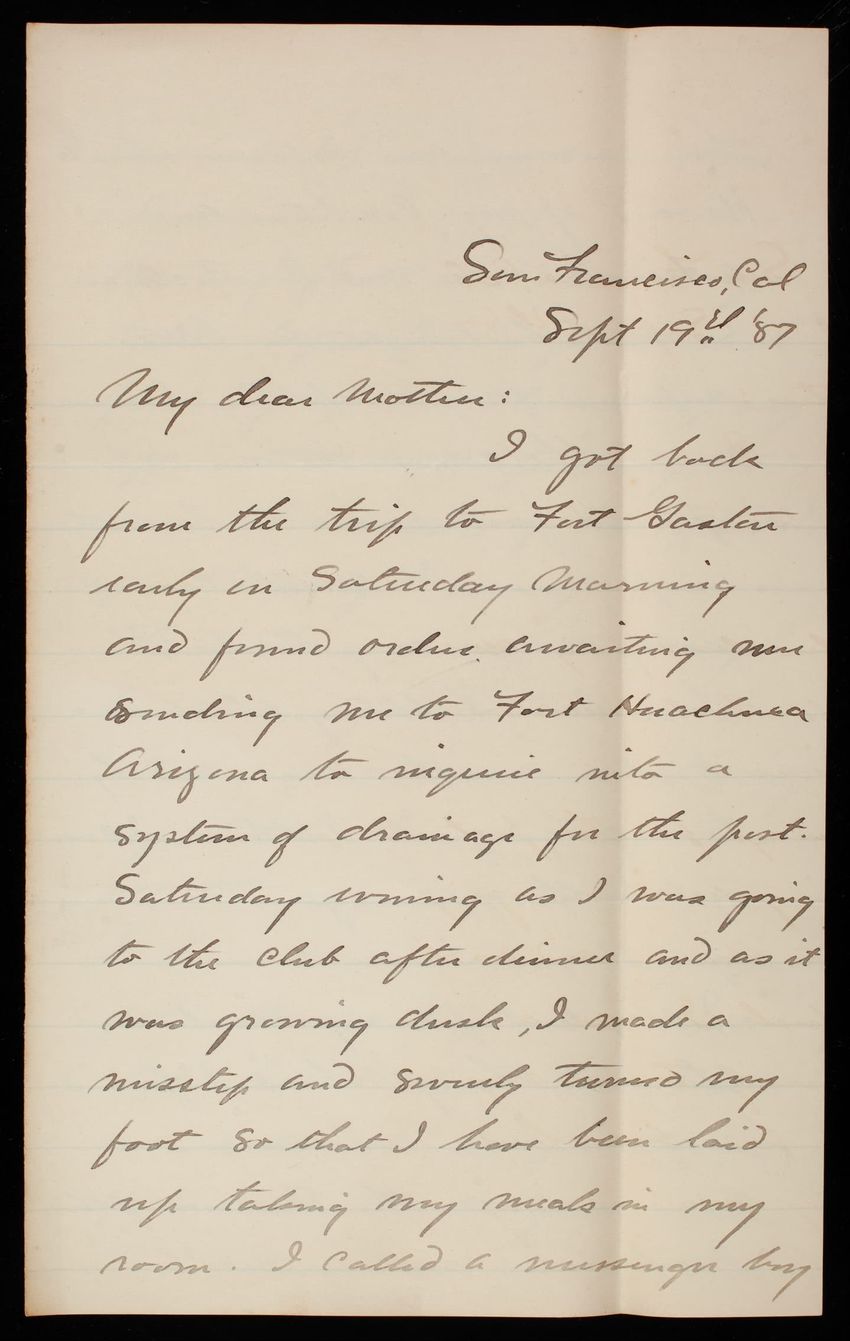 San Francisco, Cal
Sept 19th '87
My dear Mother:
I got back
from the trip to Fort Gaston
early on Saturday Morning
and found orders awaiting me
sending me to Fort Huachuca
Arizona to inquire into a
system of drainage for the post.
Saturday evening as I was going
to the club after dinner and as it
was growing dusk, I made a
misstep and severely turned my
foot so that I have been laid
up taking my meals in my
room. I called a messenger boy